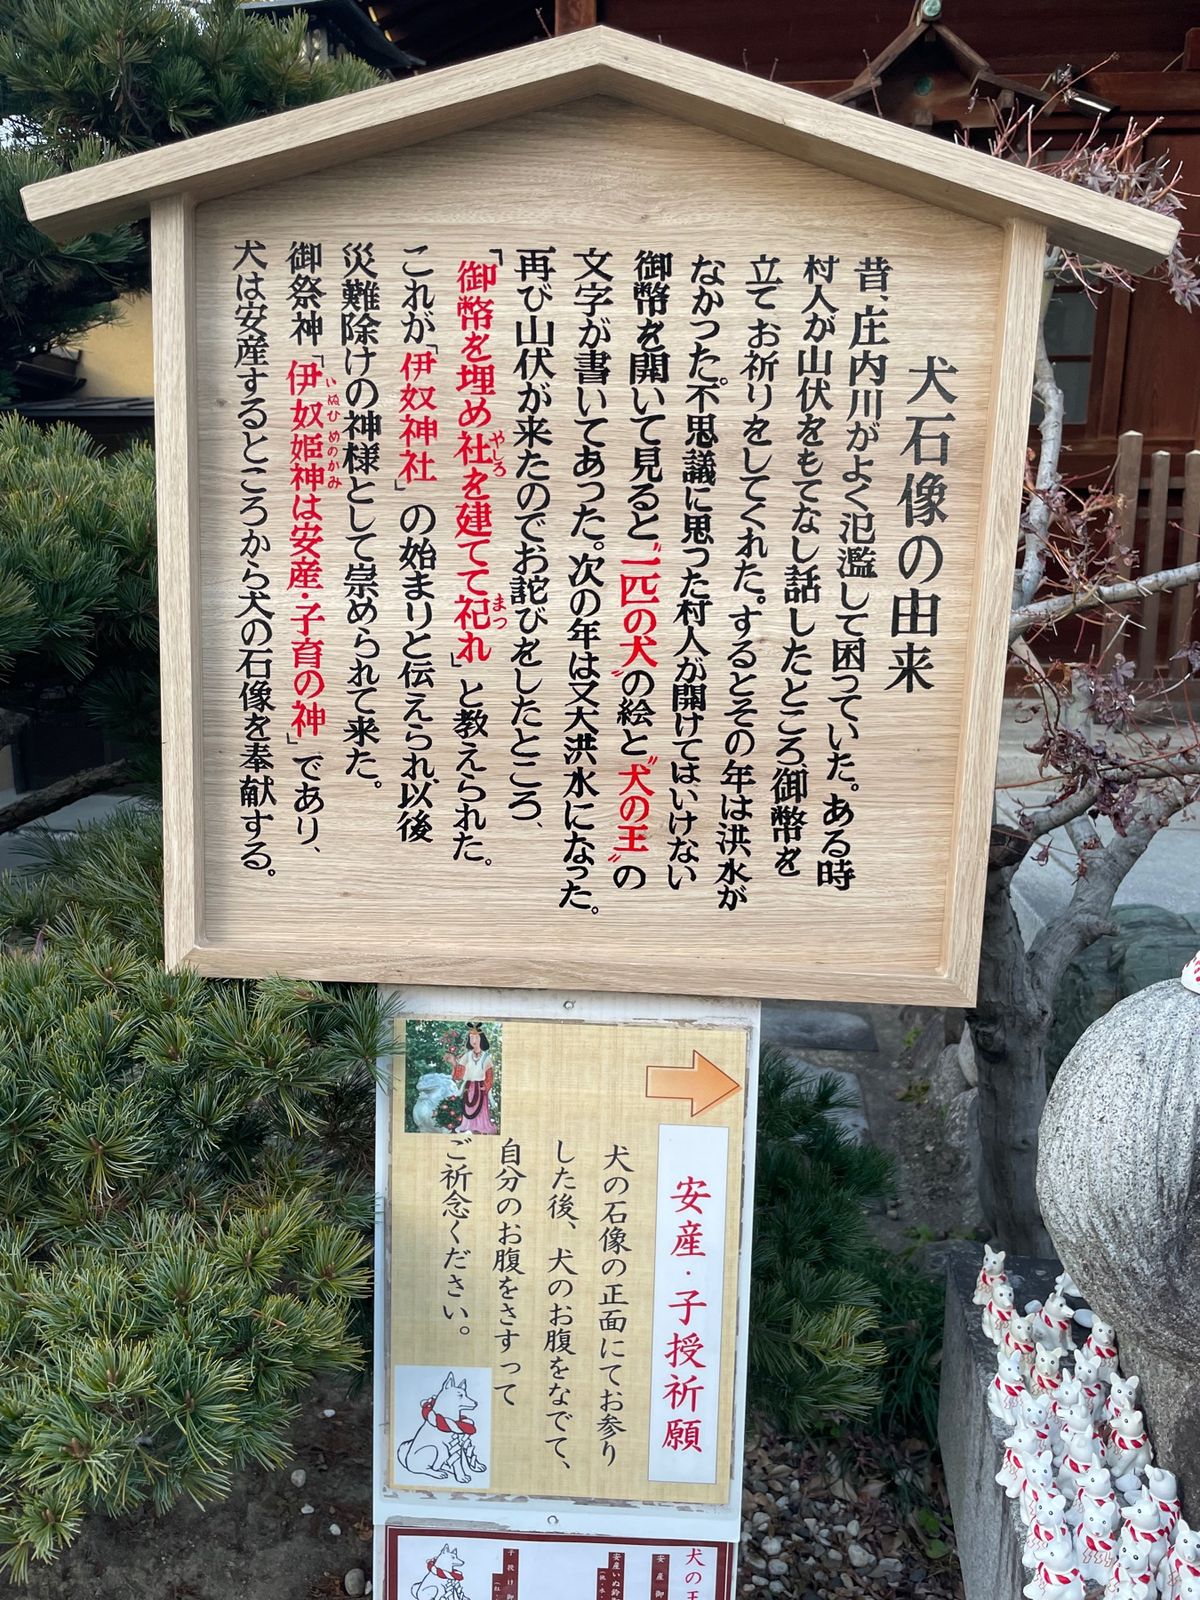 犬石像の由来
昔、庄内川がよく氾濫して困っていた。ある時
村人が山伏をもてなし話したところ、御幣を
立てお祈りをしてくれた。するとその年は洪水が
なかった。不思議に思った村人が開けてはいけない
御幣を開いて見ると〝一匹の犬〟の絵と〝犬の王〟の
文字が書いてあった。次の年は又大洪水になった。
再び山伏が来たのでお詫びをしたところ、
「御幣を埋め社を建てて祀れ」と教えられた。
やしろ
まつ
これが「伊奴神社」の始まりと伝えられ、以後
災難除けの神様として崇められて来た。
御祭神「伊奴姫神は安産・子育の神」であり、
いぬひめのかみ
犬は安産するところから犬の石像を奉献する。
安産・子授祈願
犬の石像の正面にてお参り
した後、犬のお腹をなでて、
自分のお腹をさすって
ご祈念ください。
犬の王
安産御
安産いぬ鈴
子授け御